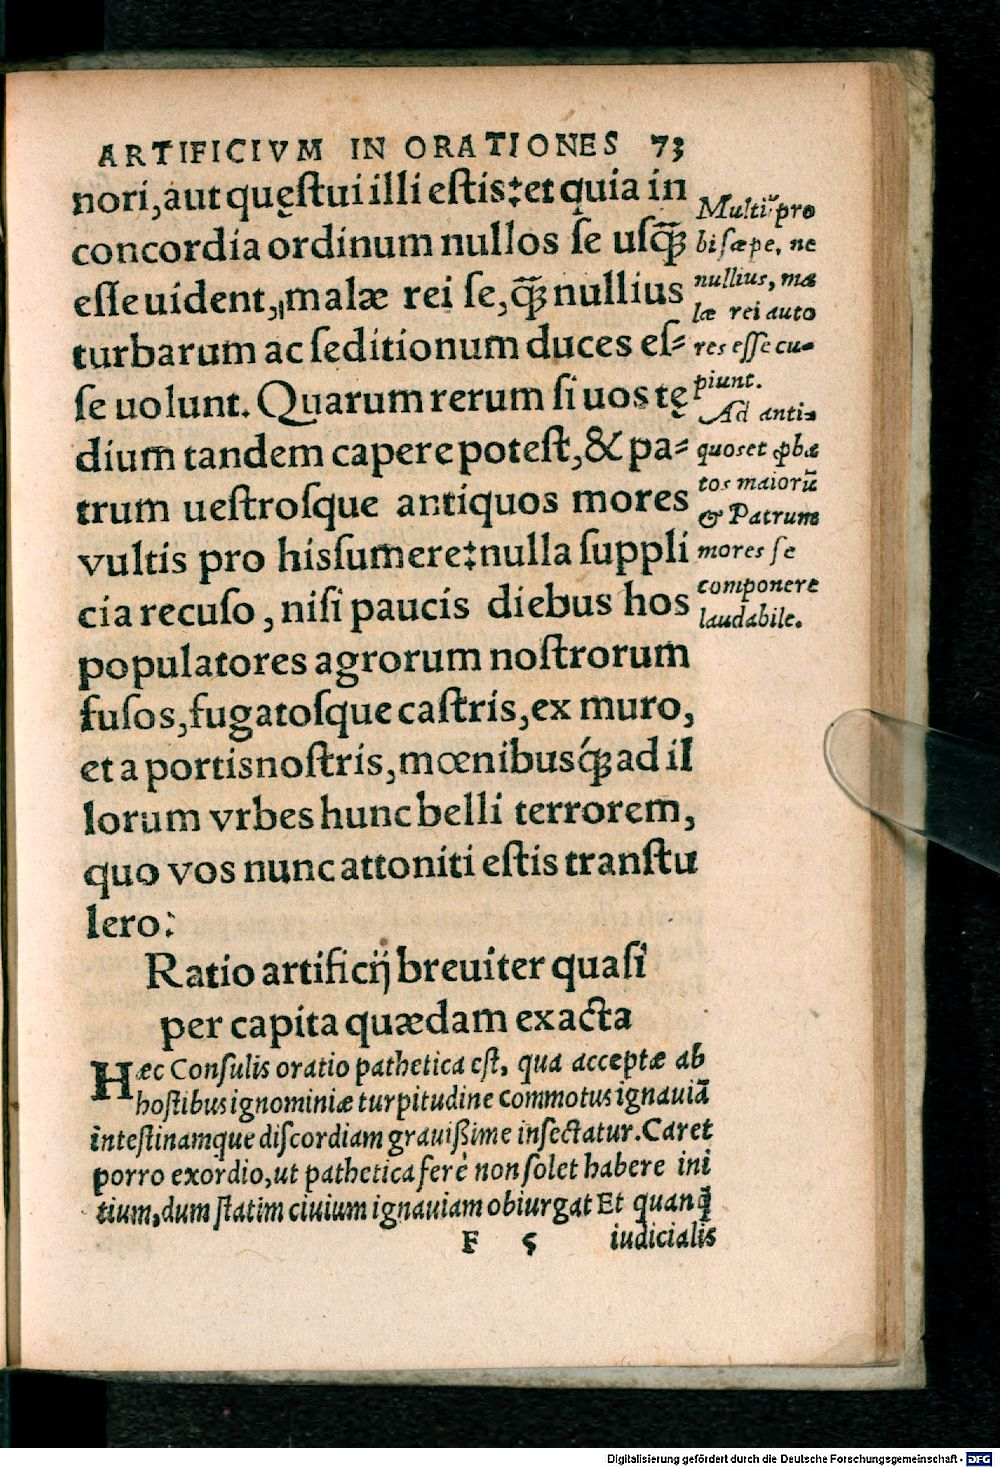 ARTIFICIVM IN ORATIONES 73
nori, aut quęstui illi estis: et quia in
concordia ordinum nullos se usq̃ꝫ
esse uident, malæ rei se, q̃ꝫ nullius
turbarum ac seditionum duces es=
se uolunt. Quarum rerum si uos tę
dium tandem capere potest, & pa=
trum uestrosque antiquos mores
vultis pro his sumere: nulla suppli
cia recuso, nisi paucis diebus hos
populatores agrorum nostrorum
fusos, fugatosque castris, ex muro,
et a portis nostris, mœnibusq́ꝫ ad il
lorum vrbes hunc belli terrorem,
quo vos nunc attoniti estis transtu
lero:
Multi ĩpro
bi sæpe, ne
nullius, ma
læ rei auto
res esse cu-
piunt.
Ad anti-
quos et ꝓba
tos maiorũ
& Patrum
mores se
componere
laudabile.
Ratio artificij breuiter quasi
per capita quædam exacta
Hæc Consulis oratio pathetica est, qua acceptæ ab
hostibus ignominiæ turpitudine commotus ignauiã
intestinamque discordiam grauißime insectatur. Caret
porro exordio, ut pathetica ferè non solet habere ini
tium, dum statim ciuium ignauiam obiurgat Et quanq̃
F 5 iudicialis
Digitalisierung gefördert durch die Deutsche Forschungsgemeinschaft - DFG